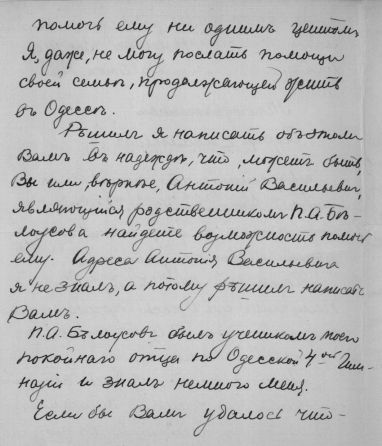 помочь ему ни однимъ центомъ
Я, даже, не могу послать помощи
своей семьѣ, продолжающей жить
въ Одессѣ.
Рѣшилъ я написать объ этомъ
Вамъ въ надеждѣ, что, можетъ быть,
Вы или, вѣрнѣе, Антоній Васильевич,
являющійся родственникомъ П.А. Бѣ-
лоусова найдете возможность помочь
ему. Адреса Антонія Васильевича
я не зналъ, а потому рѣшилъ написать
Вамъ.
П.А. Бѣлоусовъ былъ ученикомъ моего
покойнаго отца по Одесской 4-ой Гим-
назіи и зналъ немного меня.
Если бы Вамъ удалось что-